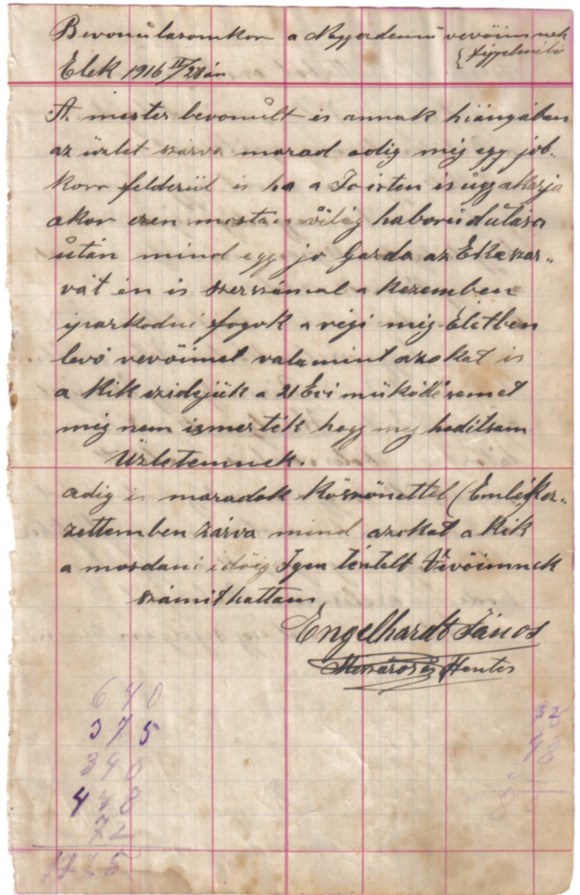 Bevonulasomkor a Nagyérdemü vevöimnek
Elek 1916 II/28 án
A mester bevonúlt és annak hiángában
az üzlet zárva marad adig még egy job-
korr felderül is ha a Jo isten is úgy akarja
akor ezen mostani világ haború dulása
után mind egy jo Gazda az Ekeszar-
vát én is szerszámal a kezemben
iparkodni fogok a régi még Életben
levö vevöimet valamint azokat is
a kik eddig a 21 Évi müködésemet
még nem ismerték hogy meg hoditsam
Üzletemnek.
adig is maradok köszönettel (Emlékez-
zettemben zárva mind azokat a kik
a mosdani idöig Igen tisztelt Vevöimnek
számithattam
Engelhardt János
Mészáros és Hentes
640
375
340
448
72
1775
32
48